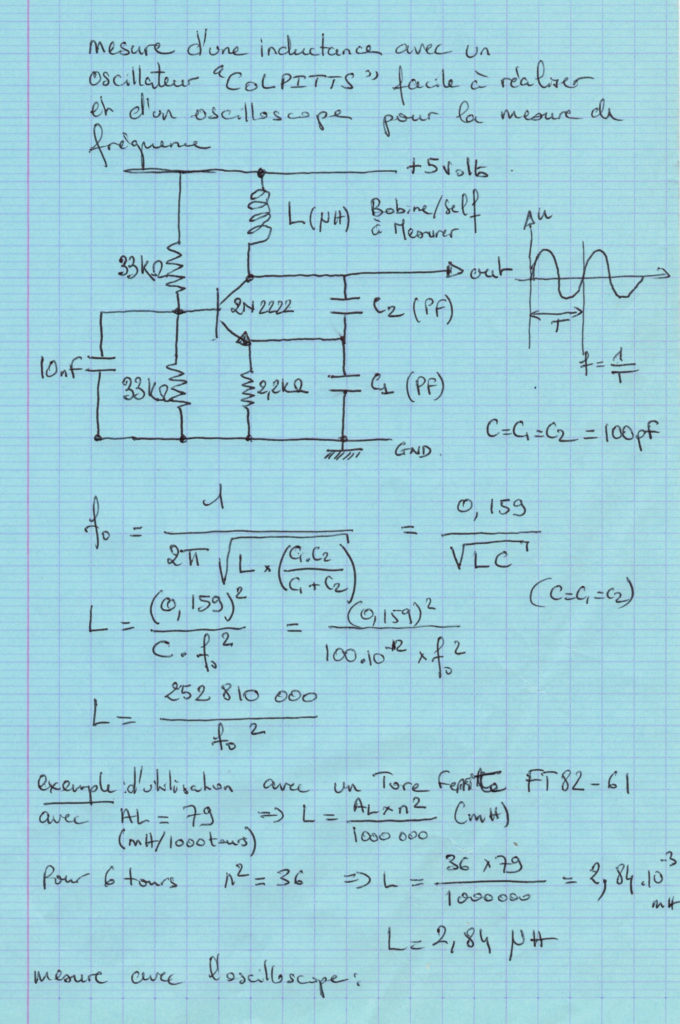 mesure d'une inductance avec un
oscillateur "COLPITTS" facile à réaliser
et d'un oscilloscope pour la mesure de
fréquence
+5volts
L(µH) Bobine/self
à Mesurer
33kΩ
2N2222
out
u
T
f = 1/T
C2 (PF)
10nf
33kΩ
2,2kΩ
C1 (PF)
GND
C=C1=C2 = 100pf
f0 = 1 / (2π √(L × (C1.C2 / C1+C2))) = 0,159 / √LC
(C=C1=C2)
L = (0,159)² / C. f0² = (0,159)² / 100.10⁻¹² × f0²
L = 252 810 000 / f0²
exemple: d'utilisation avec un Tore Ferrite FT82-61
avec AL = 79 => L = AL × n² / 1000 000 (mH)
(mH/1000tours)
Pour 6 tours n² = 36 => L = 36 × 79 / 1000000 = 2,84.10⁻³ mH
L = 2,84 µH
mesure avec l'oscilloscope: